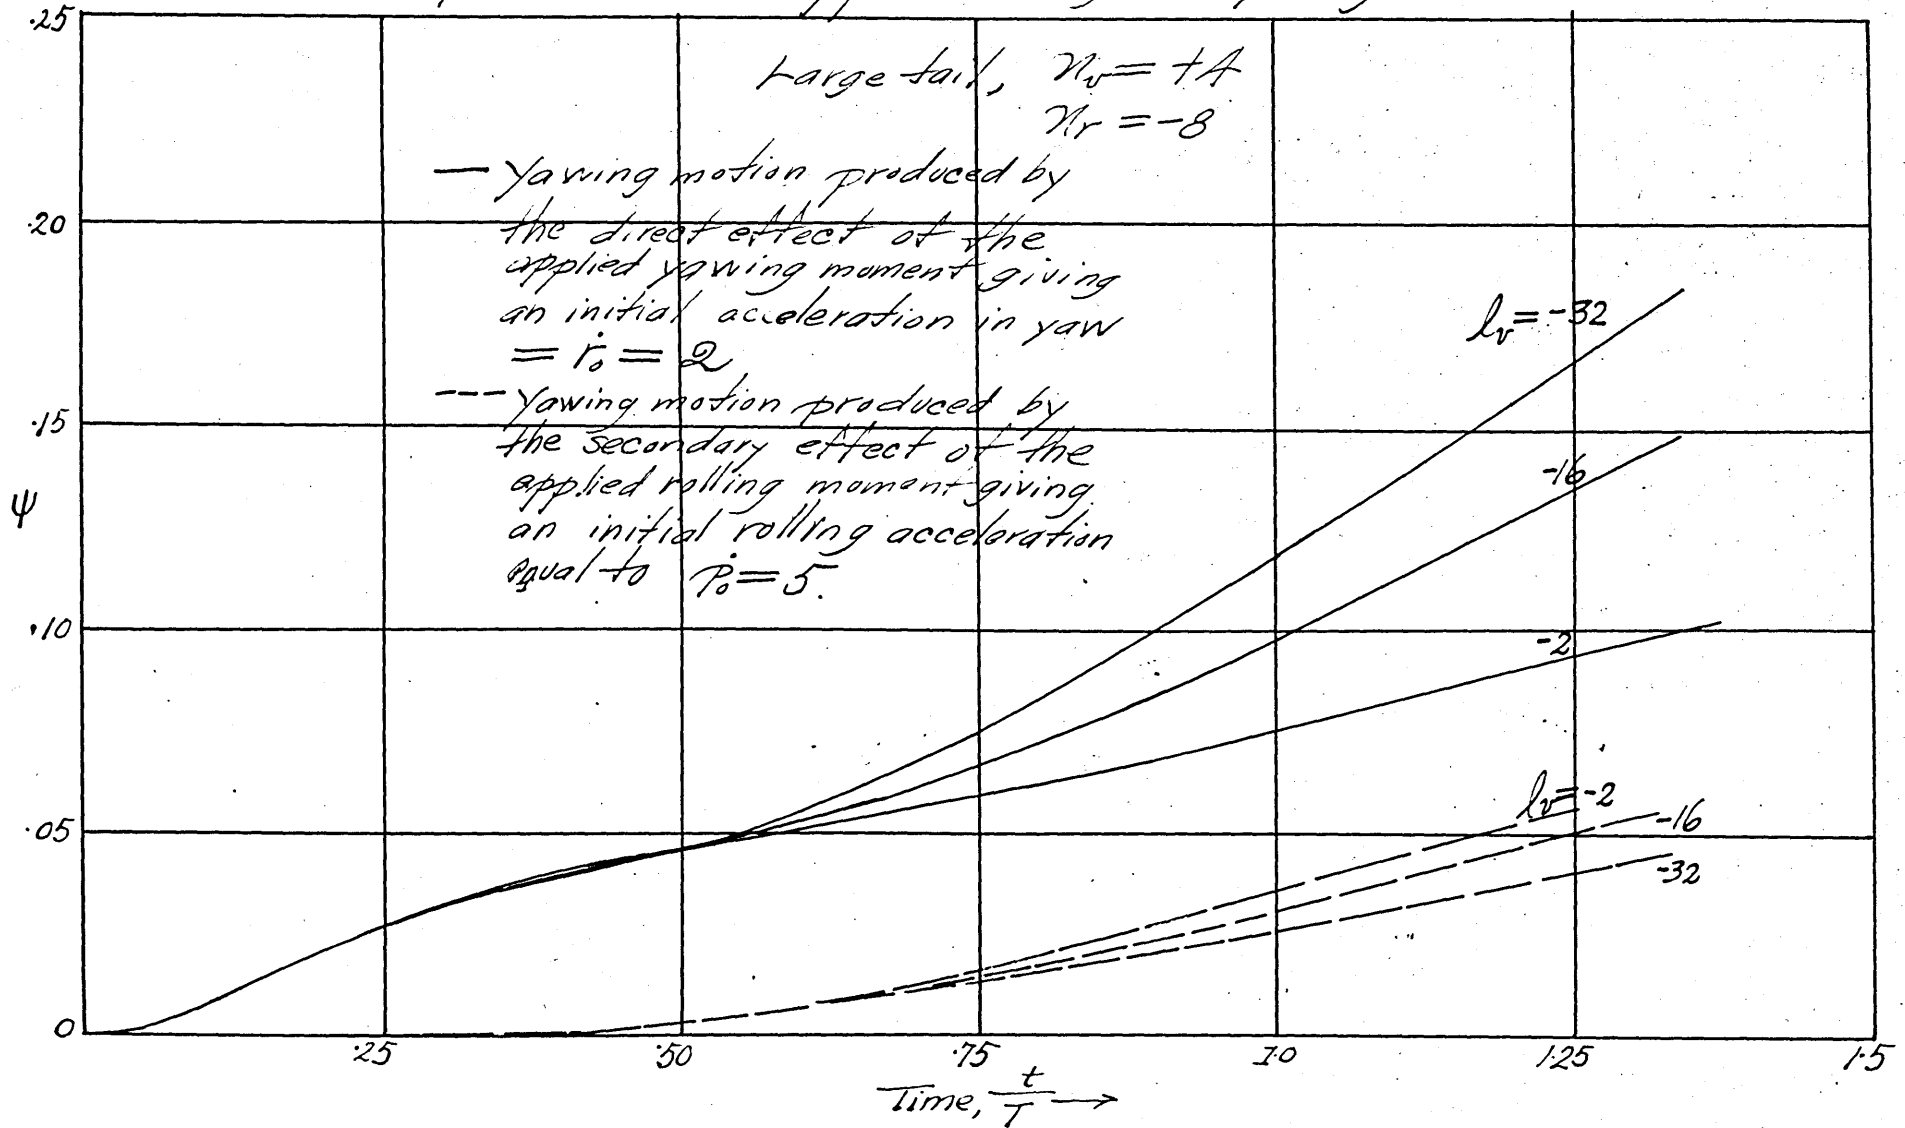 .25
Large tail, nᵥ = +4
nᵣ = -8
— Yawing motion produced by
.20
the direct effect of the
applied yawing moment giving
an initial acceleration in yaw
= ṙ₀ = 2
--- Yawing motion produced by
.15
the secondary effect of the
applied rolling moment giving
an initial rolling acceleration
equal to ṗ₀ = 5.
lᵥ = -32
-16
ψ
.10
-2
lᵥ = -2
-16
-32
.05
0
.25 .50 .75 1.0 1.25 1.5
Time, t/T →